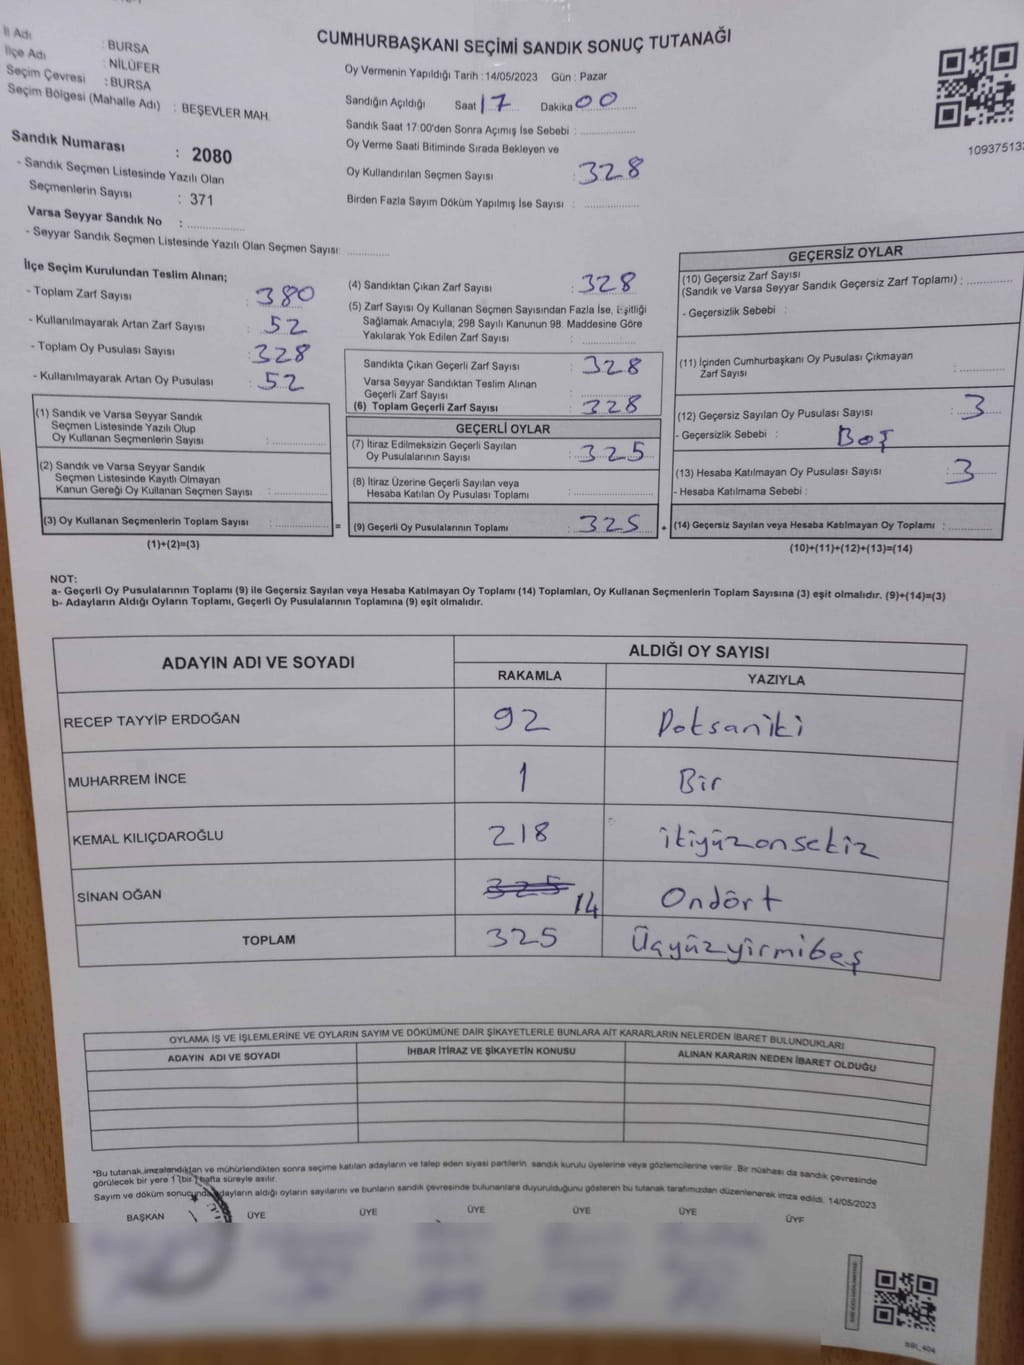 CUMHURBAŞKANI SEÇİMİ SANDIK SONUÇ TUTANAĞI
İl Adı : BURSA
İlçe Adı : NİLÜFER
Seçim Çevresi : BURSA
Seçim Bölgesi (Mahalle Adı) : BEŞEVLER MAH.
Sandık Numarası : 2080
- Sandık Seçmen Listesinde Yazılı Olan
Seçmenlerin Sayısı : 371
Varsa Seyyar Sandık No :
- Seyyar Sandık Seçmen Listesinde Yazılı Olan Seçmen Sayısı:
Oy Vermenin Yapıldığı Tarih : 14/05/2023 Gün : Pazar
Sandığın Açıldığı Saat 17 Dakika 00
Sandık Saat 17:00'den Sonra Açımış İse Sebebi :
Oy Verme Saati Bitiminde Sırada Bekleyen ve
Oy Kullandırılan Seçmen Sayısı : 328
Birden Fazla Sayım Döküm Yapılmış İse Sayısı :
İlçe Seçim Kurulundan Teslim Alınan;
- Toplam Zarf Sayısı : 380
- Kullanılmayarak Artan Zarf Sayısı : 52
- Toplam Oy Pusulası Sayısı : 328
- Kullanılmayarak Artan Oy Pusulası : 52
(1) Sandık ve Varsa Seyyar Sandık
Seçmen Listesinde Yazılı Olup
Oy Kullanan Seçmenlerin Sayısı :
(2) Sandık ve Varsa Seyyar Sandık
Seçmen Listesinde Kayıtlı Olmayan
Kanun Gereği Oy Kullanan Seçmen Sayısı :
(3) Oy Kullanan Seçmenlerin Toplam Sayısı : =
(1)+(2)=(3)
(4) Sandıktan Çıkan Zarf Sayısı : 328
(5) Zarf Sayısı Oy Kullanan Seçmen Sayısından Fazla İse, Eşitliği
Sağlamak Amacıyla; 298 Sayılı Kanunun 98. Maddesine Göre
Yakılarak Yok Edilen Zarf Sayısı :
Sandıkta Çıkan Geçerli Zarf Sayısı : 328
Varsa Seyyar Sandıktan Teslim Alınan
Geçerli Zarf Sayısı :
(6) Toplam Geçerli Zarf Sayısı : 328
GEÇERLİ OYLAR
(7) İtiraz Edilmeksizin Geçerli Sayılan
Oy Pusulalarının Sayısı : 325
(8) İtiraz Üzerine Geçerli Sayılan veya
Hesaba Katılan Oy Pusulası Toplamı :
(9) Geçerli Oy Pusulalarının Toplamı : 325 +
GEÇERSİZ OYLAR
(10) Geçersiz Zarf Sayısı
(Sandık ve Varsa Seyyar Sandık Geçersiz Zarf Toplamı) :
- Geçersizlik Sebebi :
(11) İçinden Cumhurbaşkanı Oy Pusulası Çıkmayan
Zarf Sayısı :
(12) Geçersiz Sayılan Oy Pusulası Sayısı : 3
- Geçersizlik Sebebi : Boş
(13) Hesaba Katılmayan Oy Pusulası Sayısı : 3
- Hesaba Katılmama Sebebi :
(14) Geçersiz Sayılan veya Hesaba Katılmayan Oy Toplamı :
(10)+(11)+(12)+(13)=(14)
NOT:
a- Geçerli Oy Pusulalarının Toplamı (9) ile Geçersiz Sayılan veya Hesaba Katılmayan Oy Toplamı (14) Toplamları, Oy Kullanan Seçmenlerin Toplam Sayısına (3) eşit olmalıdır. (9)+(14)=(3)
b- Adayların Aldığı Oyların Toplamı, Geçerli Oy Pusulalarının Toplamına (9) eşit olmalıdır.
ADAYIN ADI VE SOYADI
ALDIĞI OY SAYISI
RAKAMLA YAZIYLA
RECEP TAYYİP ERDOĞAN 92 Doksaniki
MUHARREM İNCE 1 Bir
KEMAL KILIÇDAROĞLU 218 ikiyüzonsekiz
SİNAN OĞAN 325 14 Ondört
TOPLAM 325 Üçyüzyirmibeş
OYLAMA İŞ VE İŞLEMLERİNE VE OYLARIN SAYIM VE DÖKÜMÜNE DAİR ŞİKAYETLERLE BUNLARA AİT KARARLARIN NELERDEN İBARET BULUNDUKLARI
ADAYIN ADI VE SOYADI İHBAR İTİRAZ VE ŞİKAYETİN KONUSU ALINAN KARARIN NEDEN İBARET OLDUĞU
*Bu tutanak,imzalandıktan ve mühürlendikten sonra seçime katılan adayların ve talep eden siyasi partilerin sandık kurulu üyelerine veya gözlemcilerine verilir. Bir nüshası da sandık çevresinde
görülecek bir yere 1 (bir) hafta süreyle asılır.
Sayım ve döküm sonucunda adayların aldığı oyların sayılarını ve bunların sandık çevresinde bulunanlara duyurulduğunu gösteren bu tutanak tarafımızdan düzenlenerek imza edildi. 14/05/2023
BAŞKAN ÜYE ÜYE ÜYE ÜYE ÜYE ÜYE